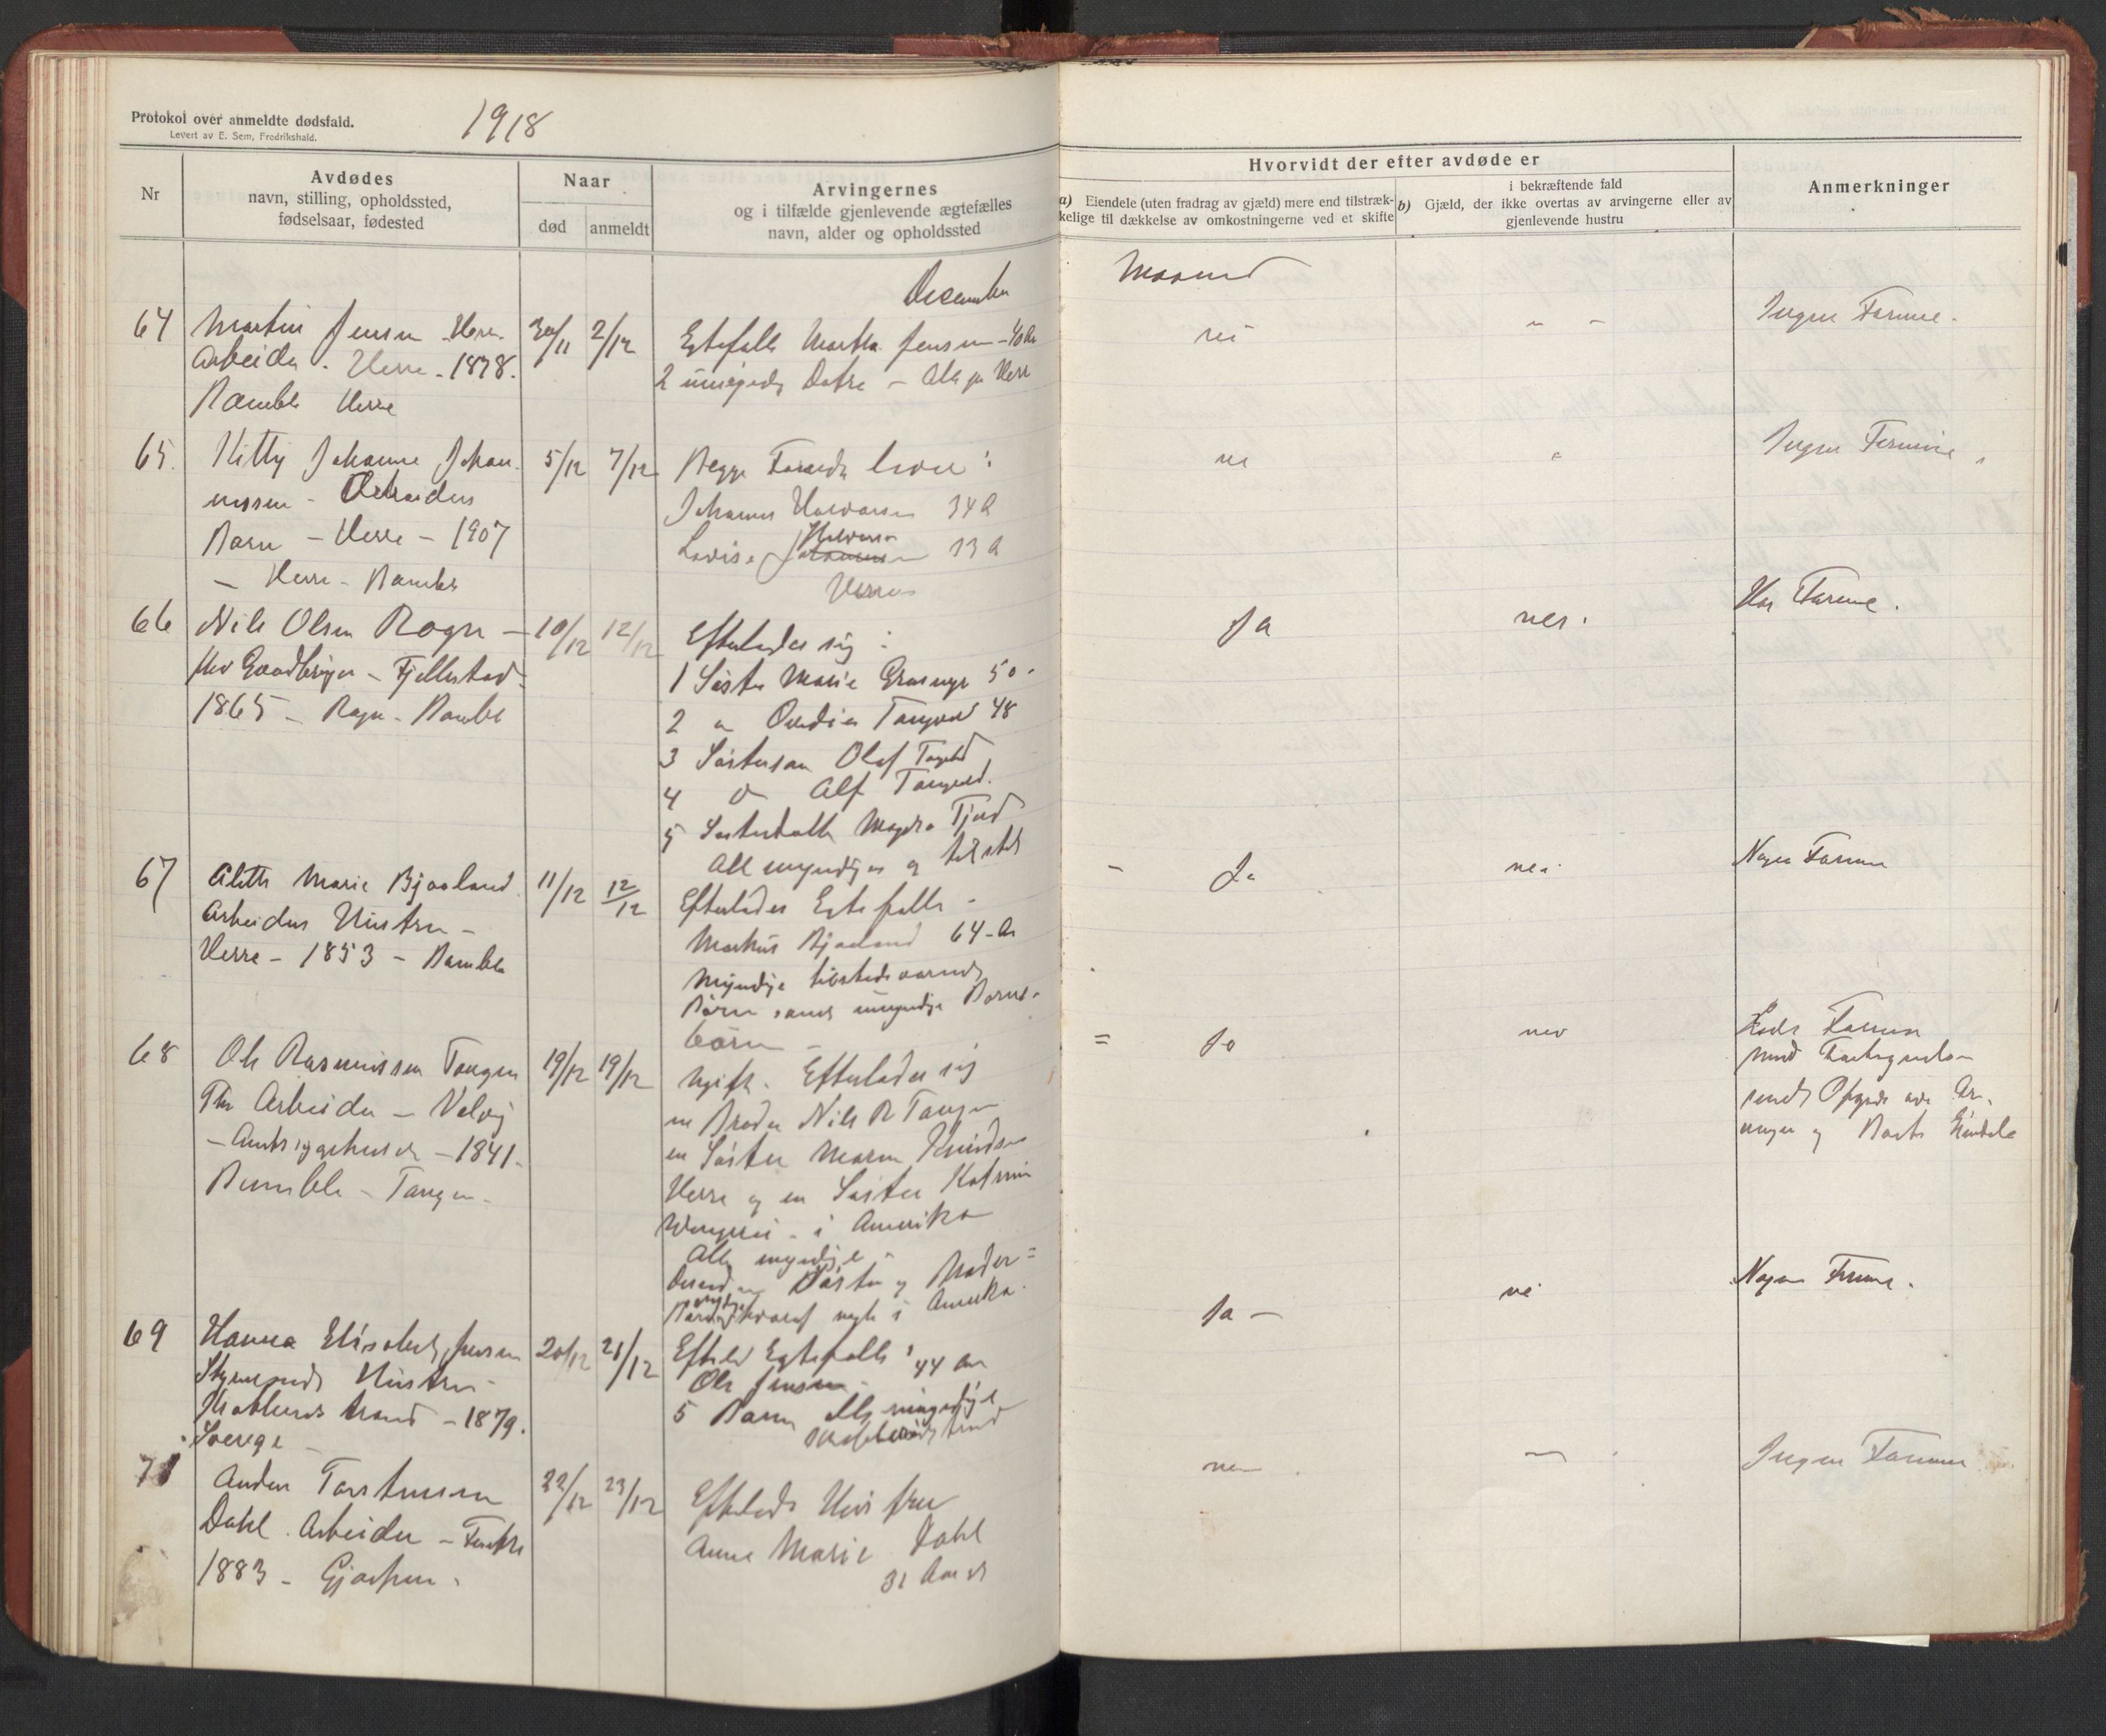 Protokol over anmeldte dødsfald.
Levert av E. Sem, Fredrikshald.
1918
Nr
Avdødes
navn, stilling, opholdssted,
fødselsaar, fødested
Naar
død
anmeldt
Arvingernes
og i tilfælde gjenlevende ægtefælles
navn, alder og opholdssted
Hvorvidt der efter avdøde er
a) Eiendele (uten fradrag av gjæld) mere end tilstræk-
kelige til dækkelse av omkostningerne ved et skifte
i bekræftende fald
b) Gjæld, der ikke overtas av arvingerne eller av
gjenlevende hustru
Anmerkninger
December
Maaned
64
Martin Jensen Herre
Arbeider. Herre - 1878.
Bamble Herre
30/11
2/12
Egtefelle Martha Jensen - 40 Ar
2 umyndig Døtre - Alle på Herre
nei
" -
Ingen Formue.
65.
Kitty Johanne Johan
nessen - Arbeiders
Barn - Herre - 1907
- Herre - Bamble
5/12
7/12
Begge Forældre lever:
Johannes Halvorsen 34 A
Lovise Halvorsen 33 A
Herre
nei
"
Ingen Formue
66
Nils Olsen Rogn -
fhv Gaardbruger - Fjellestad.
1865 - Rogn - Bamble
10/12
12/12
Efterlader sig:
1 Søster Marie 50 -
2 " Tangvald 48
3 Søstersøn Olaf Tangvald
4 " Alf Tangvald.
5 Søsterdatter Magda
Alle myndige og tilstede
Ja
nei.
Har Formue.
67
Aleth Marie Bjaaland
Arbeiders Hustru -
Herre - 1853 - Bamble
11/12
12/12
Efterlader Egtefelle -
Markus Bjaaland 64 - Ar
Myndige tilstedeværende
Børn samt umyndige Barne-
børn -
- Ja
nei
Nogen Formue
68
Ole Rasmussen Tangen
Fhv Arbeider - Valøy
- 1841 -
Bamble - Tangen -
19/12
19/12
Ugift. Efterlader sig
en Broder Nils R Tangen
en Søster Maren Knudsen
Herre og en Søster Katrine
i Amerika
Alle myndige -
Søster og Broder =
i Amerika.
= Ja
nei
Formue
med
samt Opgave over Ar-
vinger og Boets Eiendele
69
Hanna Elisabeth Jensen
Styrmands Hustru -
strand - 1879.
Sverige -
20/12
21/12
Efterl Egtefelle 44 Aar
Ole Jensen -
5 Barn alle umyndige
Ja -
nei
Nogen Formue.
71
Anders Torstensen
Dahl. Arbeider -
1883 - Gjerpen.
22/12
23/12
Efterlader Hustru
Anne Marie Dahl
31 Aar
nei
-
Ingen Formue